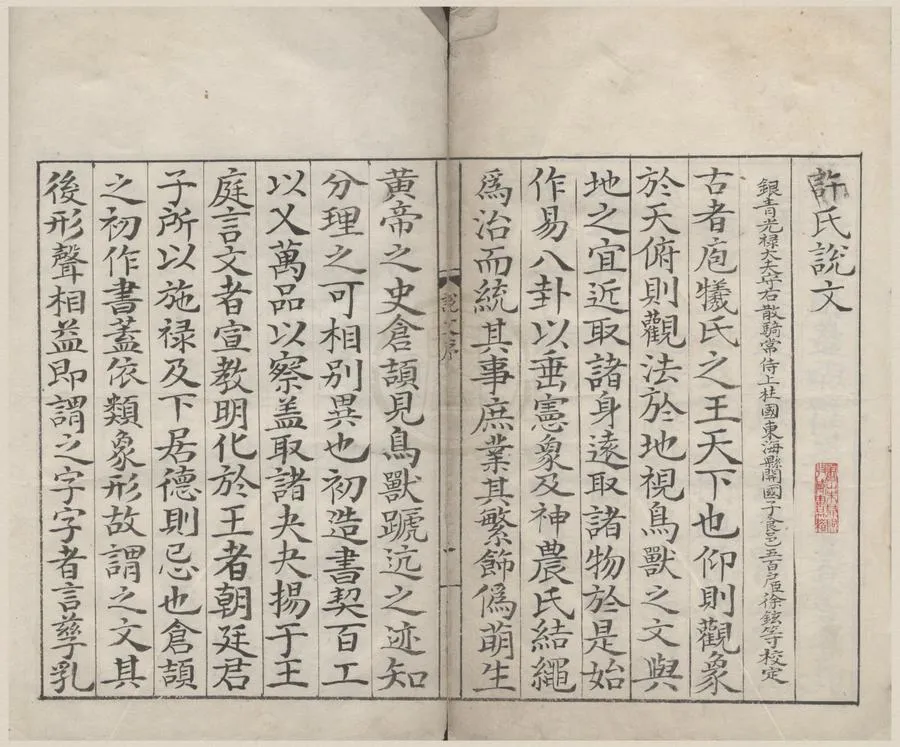 許氏說文
銀青光禄大夫守右散騎常侍上柱國東海縣開國子食邑五百户臣徐鉉等校定
古者庖犧氏之王天下也仰則觀象
於天俯則觀法於地視鳥獸之文與
地之宜近取諸身遠取諸物於是始
作易八卦以垂憲象及神農氏結繩
爲治而統其事庶業其繁飾僞萌生
說文序
黄帝之史倉頡見鳥獸蹏迒之迹知
分理之可相别異也初造書契百工
以乂萬品以察盖取諸夬夬揚于王
庭言文者宣教明化於王者朝廷君
子所以施禄及下居德則忌也倉頡
之初作書蓋依類象形故謂之文其
後形聲相益即謂之字字者言孳乳